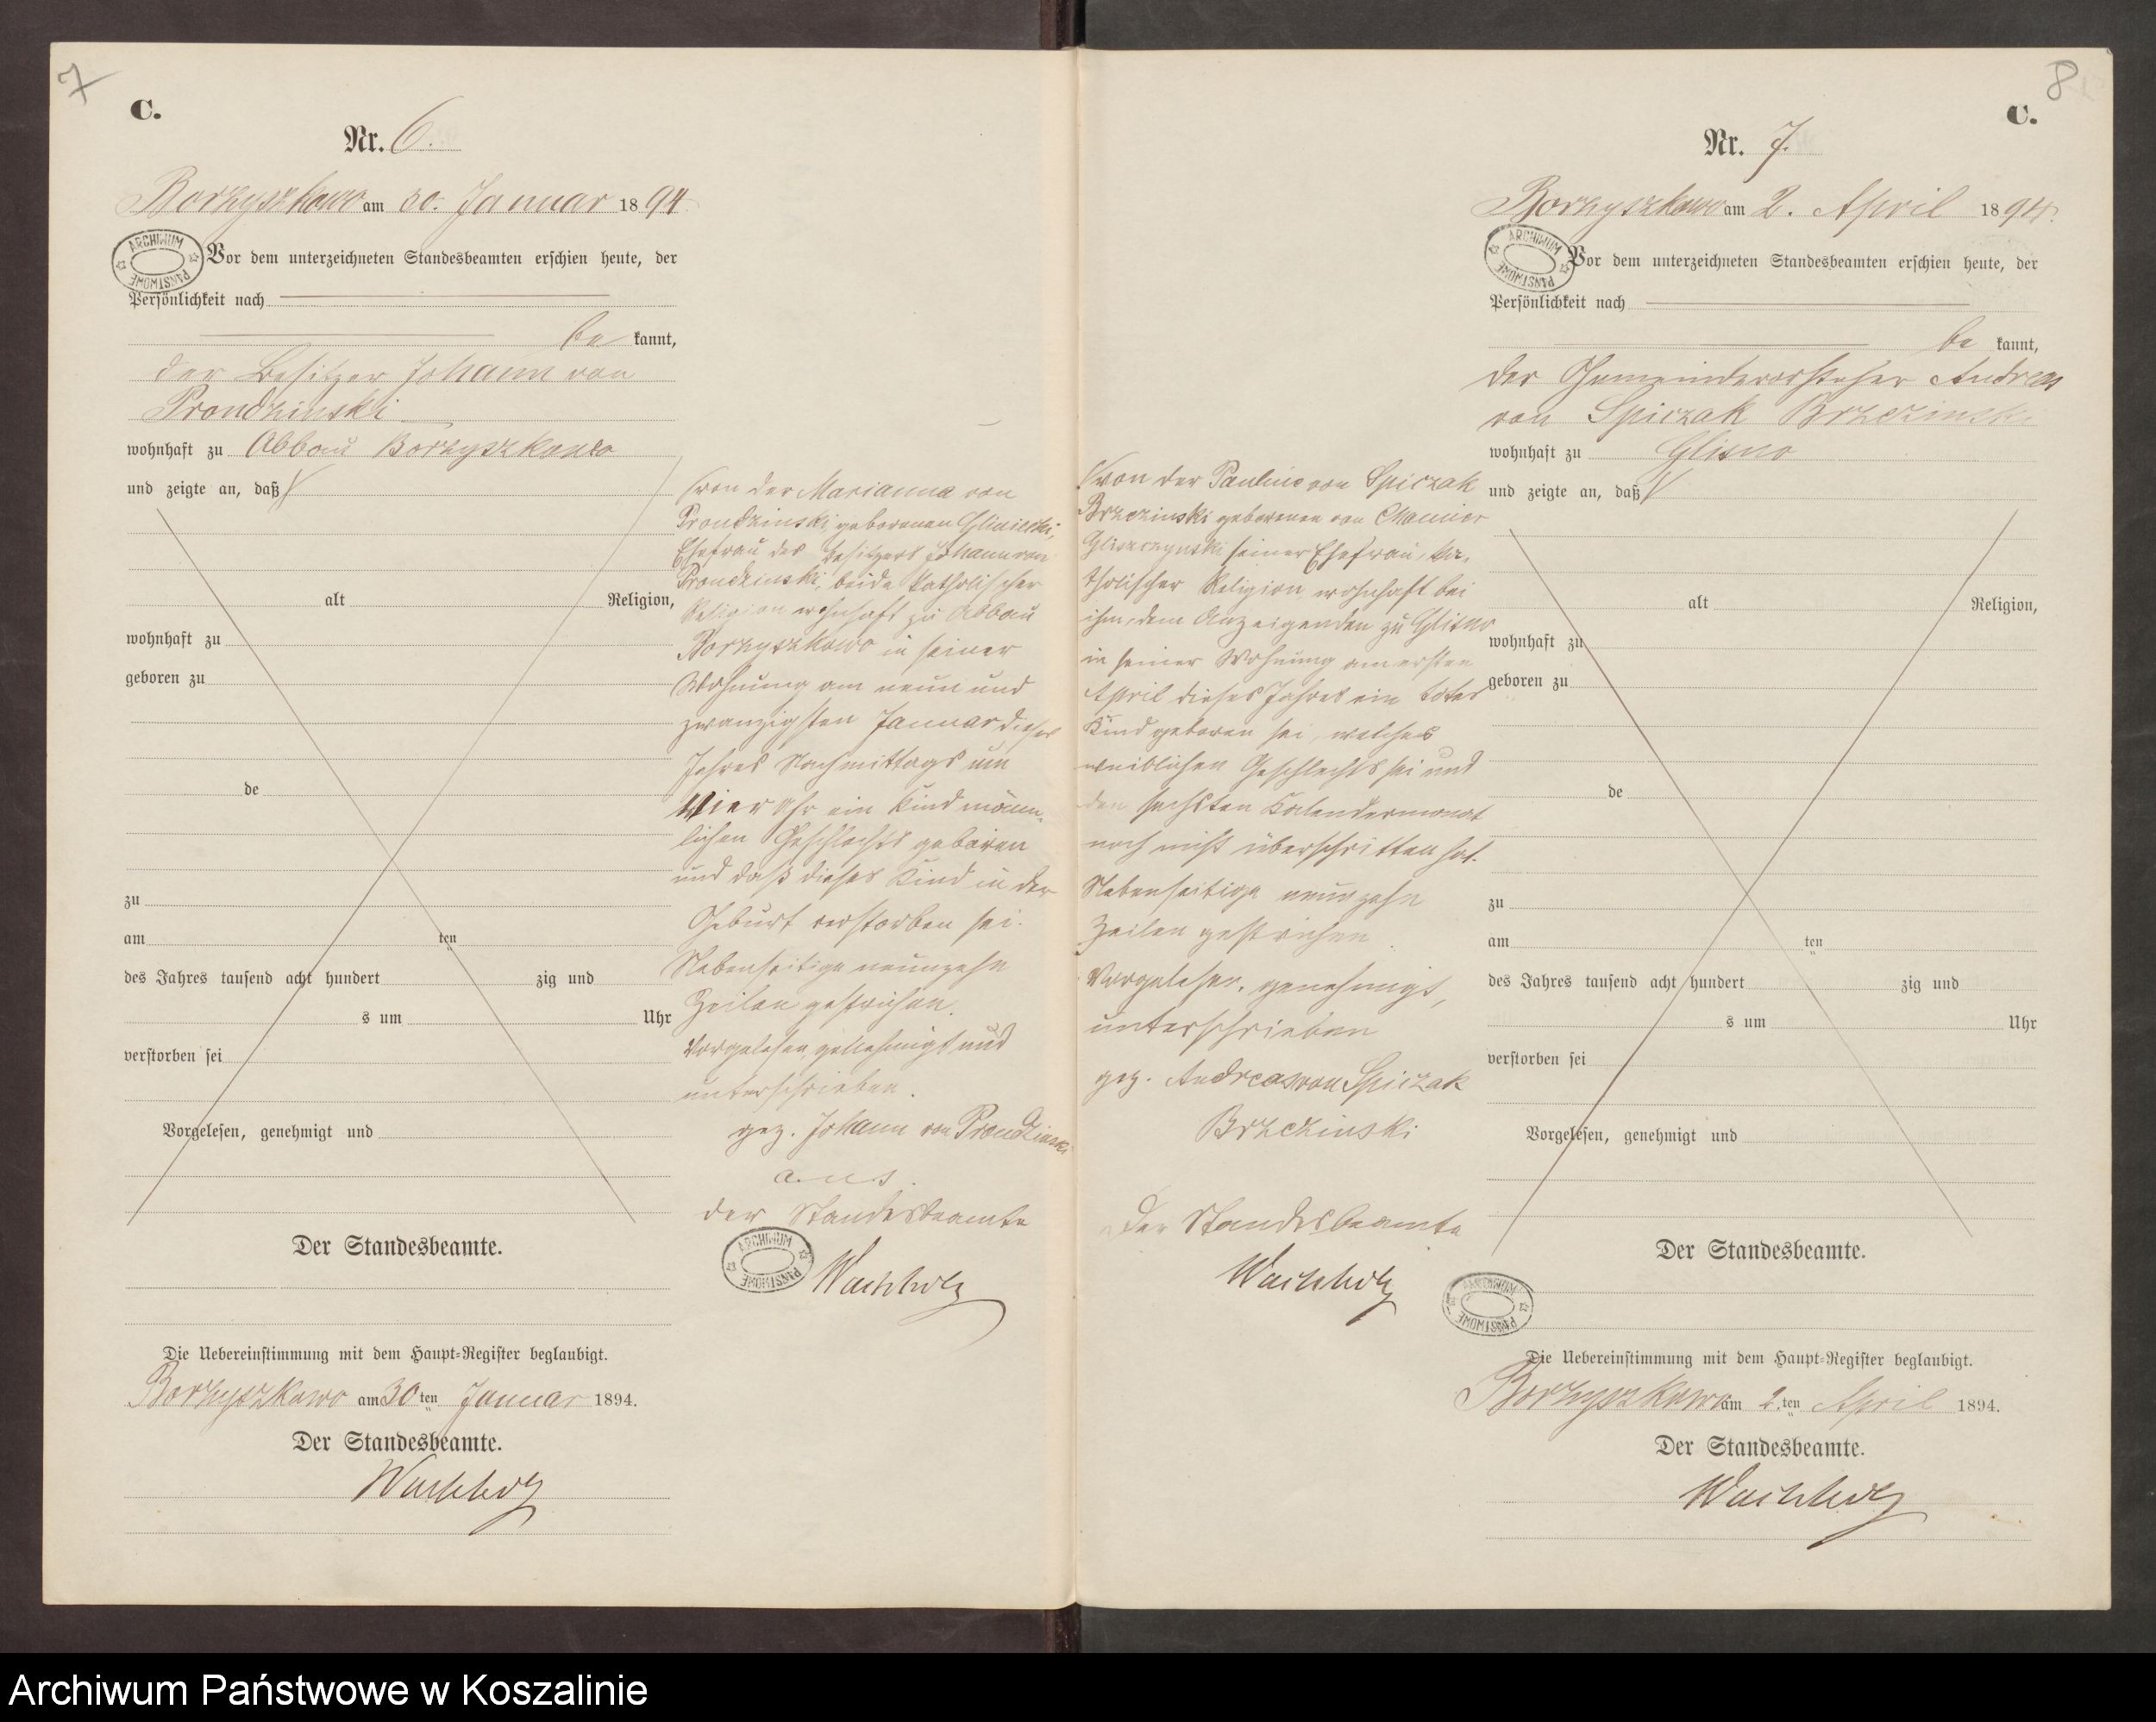 7
C.
Nr. 6.
Borzyszkowo am 30. Januar 1894.
ARCHIWUM PAŃSTWOWE
Vor dem unterzeichneten Standesbeamten erschien heute, der
Persönlichkeit nach
be kannt,
der Besitzer Johann von
Prondzinski
wohnhaft zu Abbau Borzyszkowo
und zeigte an, daß
alt Religion,
wohnhaft zu
geboren zu
de
zu
am ten
des Jahres tausend acht hundert zig und
s um Uhr
verstorben sei
Vorgelesen, genehmigt und
Der Standesbeamte.
von der Marianna von
Prondzinski, geborenen Gliniecki,
Ehefrau des Besitzers Johann von
Prondzinski, beide katholischer
Religion wohnhaft zu Abbau
Borzyszkowo in seiner
Wohnung am neun und
zwanzigsten Januar dieses
Jahres Nachmittags um
Vier Uhr ein Kind männ-
lichen Geschlechts geboren
und daß dieses Kind in der
Geburt verstorben sei.
Nebenseitige neunzehn
Zeilen gestrichen.
Vorgelesen, genehmigt und
unterschrieben.
gez. Johann von Prondzinski
der Standesbeamte
ARCHIWUM PAŃSTWOWE
Wachholz
Die Uebereinstimmung mit dem Haupt-Register beglaubigt.
Borzyszkowo am 30ten Januar 1894.
Der Standesbeamte.
Wachholz
8
C.
Nr. 7.
Borzyszkowo am 2. April 1894.
ARCHIWUM PAŃSTWOWE
Vor dem unterzeichneten Standesbeamten erschien heute, der
Persönlichkeit nach
be kannt,
der Gemeindevorsteher Andreas
von Spiczak Brzezinski
wohnhaft zu Glisno
und zeigte an, daß
von der Pauline von Spiczak
Brzezinski geborenen von Chamier
Gliszczynski seiner Ehefrau, ka-
tholischer Religion wohnhaft bei
ihm, dem Anzeigenden zu Glisno
in seiner Wohnung am ersten
April dieses Jahres ein totes
Kind geboren sei, welches
weiblichen Geschlechts sei und
den sechsten Kalendermonat
noch nicht überschritten hat.
Nebenseitige neunzehn
Zeilen gestrichen.
Vorgelesen, genehmigt,
unterschrieben
gez. Andreas von Spiczak
Brzezinski
Der Standesbeamte
Wachholz
alt Religion,
wohnhaft zu
geboren zu
de
zu
am ten
des Jahres tausend acht hundert zig und
s um Uhr
verstorben sei
Vorgelesen, genehmigt und
Der Standesbeamte.
ARCHIWUM PAŃSTWOWE
Die Uebereinstimmung mit dem Haupt-Register beglaubigt.
Borzyszkowo am 2.ten April 1894.
Der Standesbeamte.
Wachholz
Archiwum Państwowe w Koszalinie